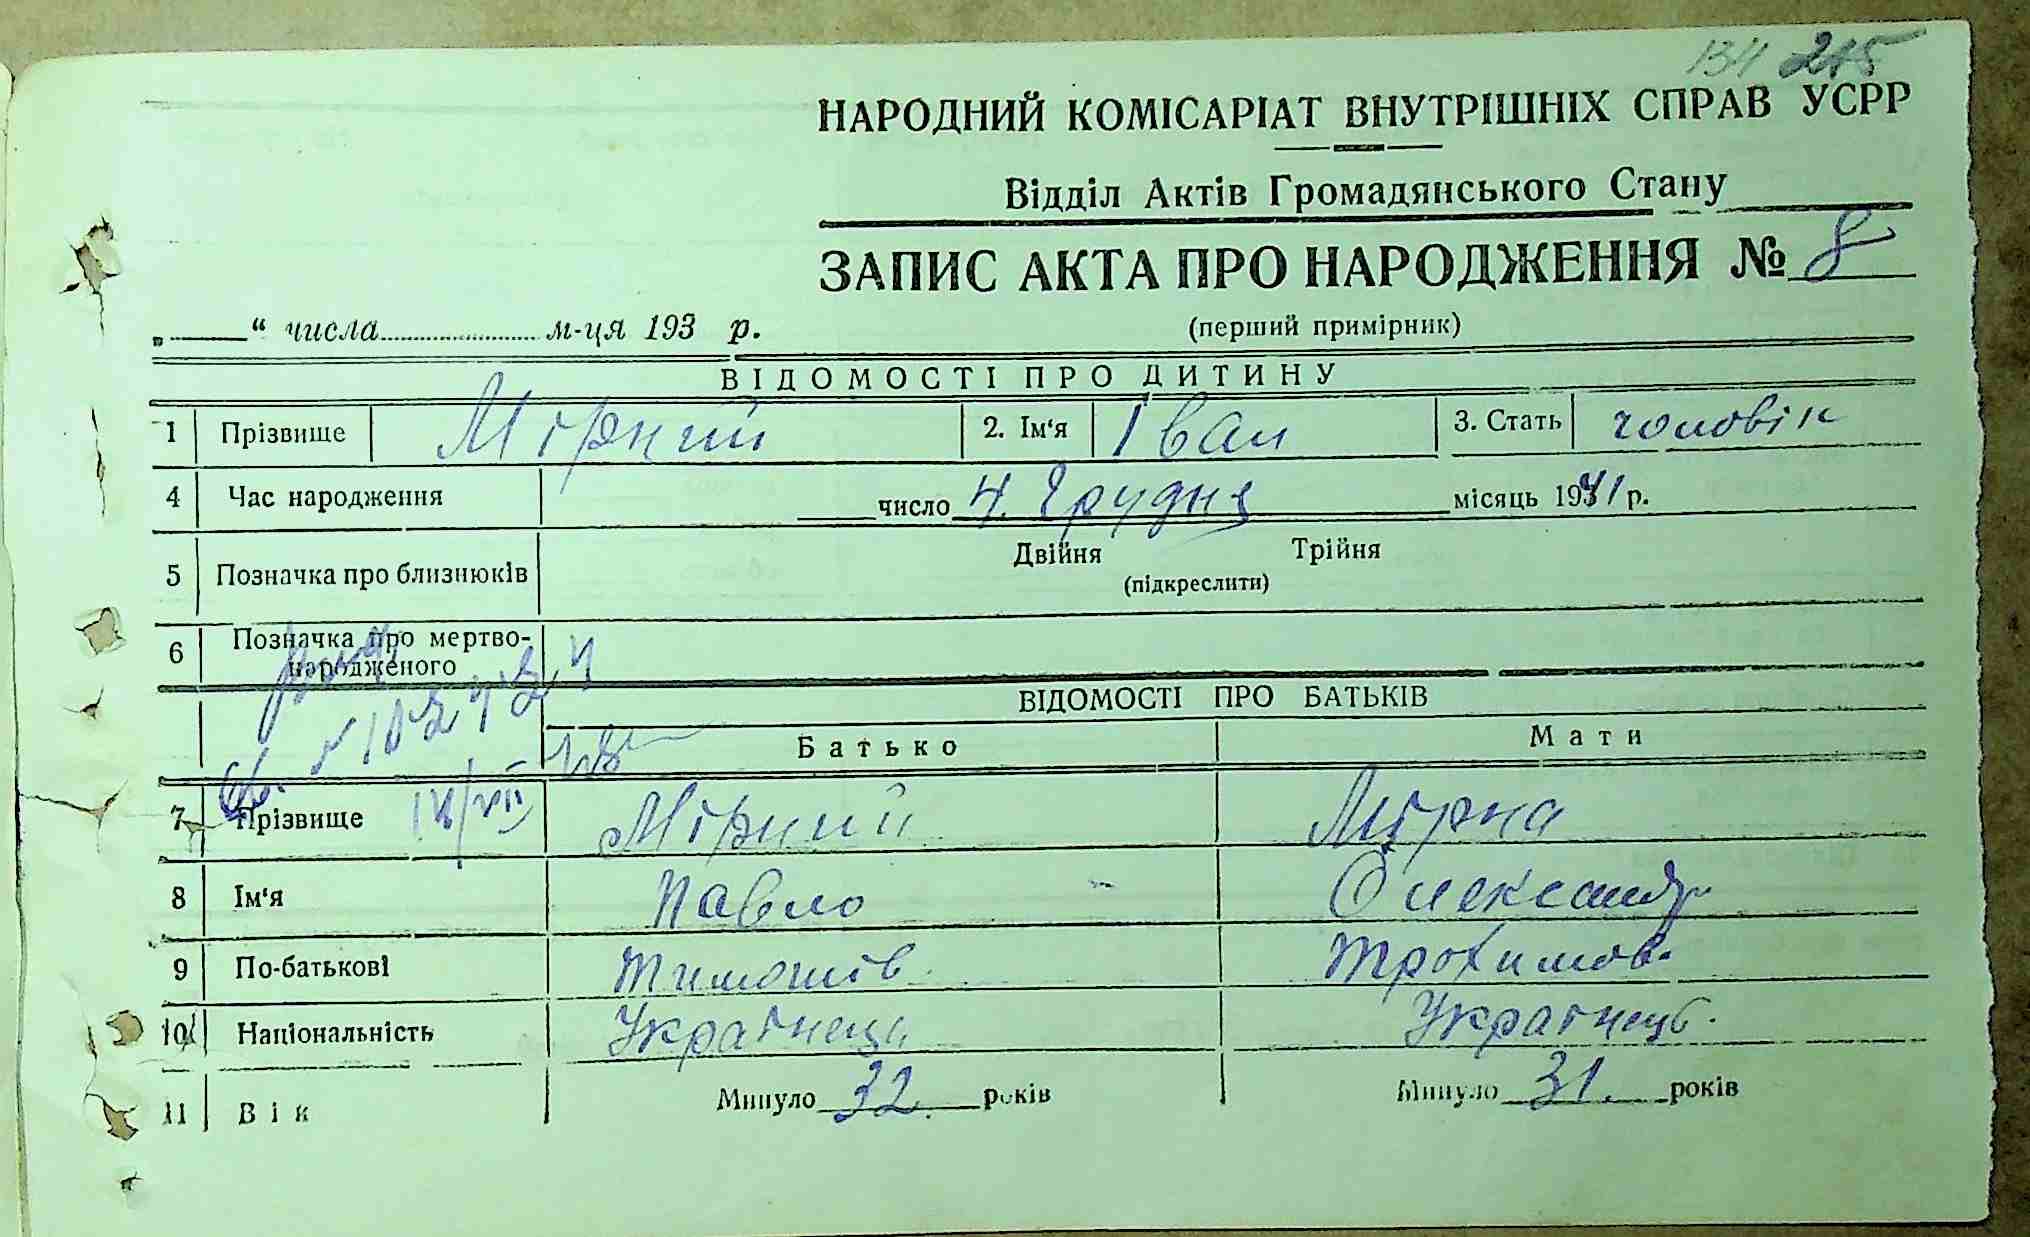 134 215
НАРОДНИЙ КОМІСАРІАТ ВНУТРІШНІХ СПРАВ УСРР
Відділ Актів Громадянського Стану
ЗАПИС АКТА ПРО НАРОДЖЕННЯ № 8
„ “ числа м-ця 193 р. (перший примірник)
ВІДОМОСТІ ПРО ДИТИНУ
1 Прізвище Мірний 2. Ім'я Іван 3. Стать чоловік
4 Час народження число 4. Грудня місяць 1941 р.
5 Позначка про близнюків Двійня Трійня
(підкреслити)
6 Позначка про мертво-
народженого
ВІДОМОСТІ ПРО БАТЬКІВ
Батько Мати
7 Прізвище Мірний Мірна
8 Ім'я Павло Олександр
9 По-батькові Тимошів Трохимов.
10 Національність Украінець Украінець.
11 Вік Минуло 32. років Минуло 31. років